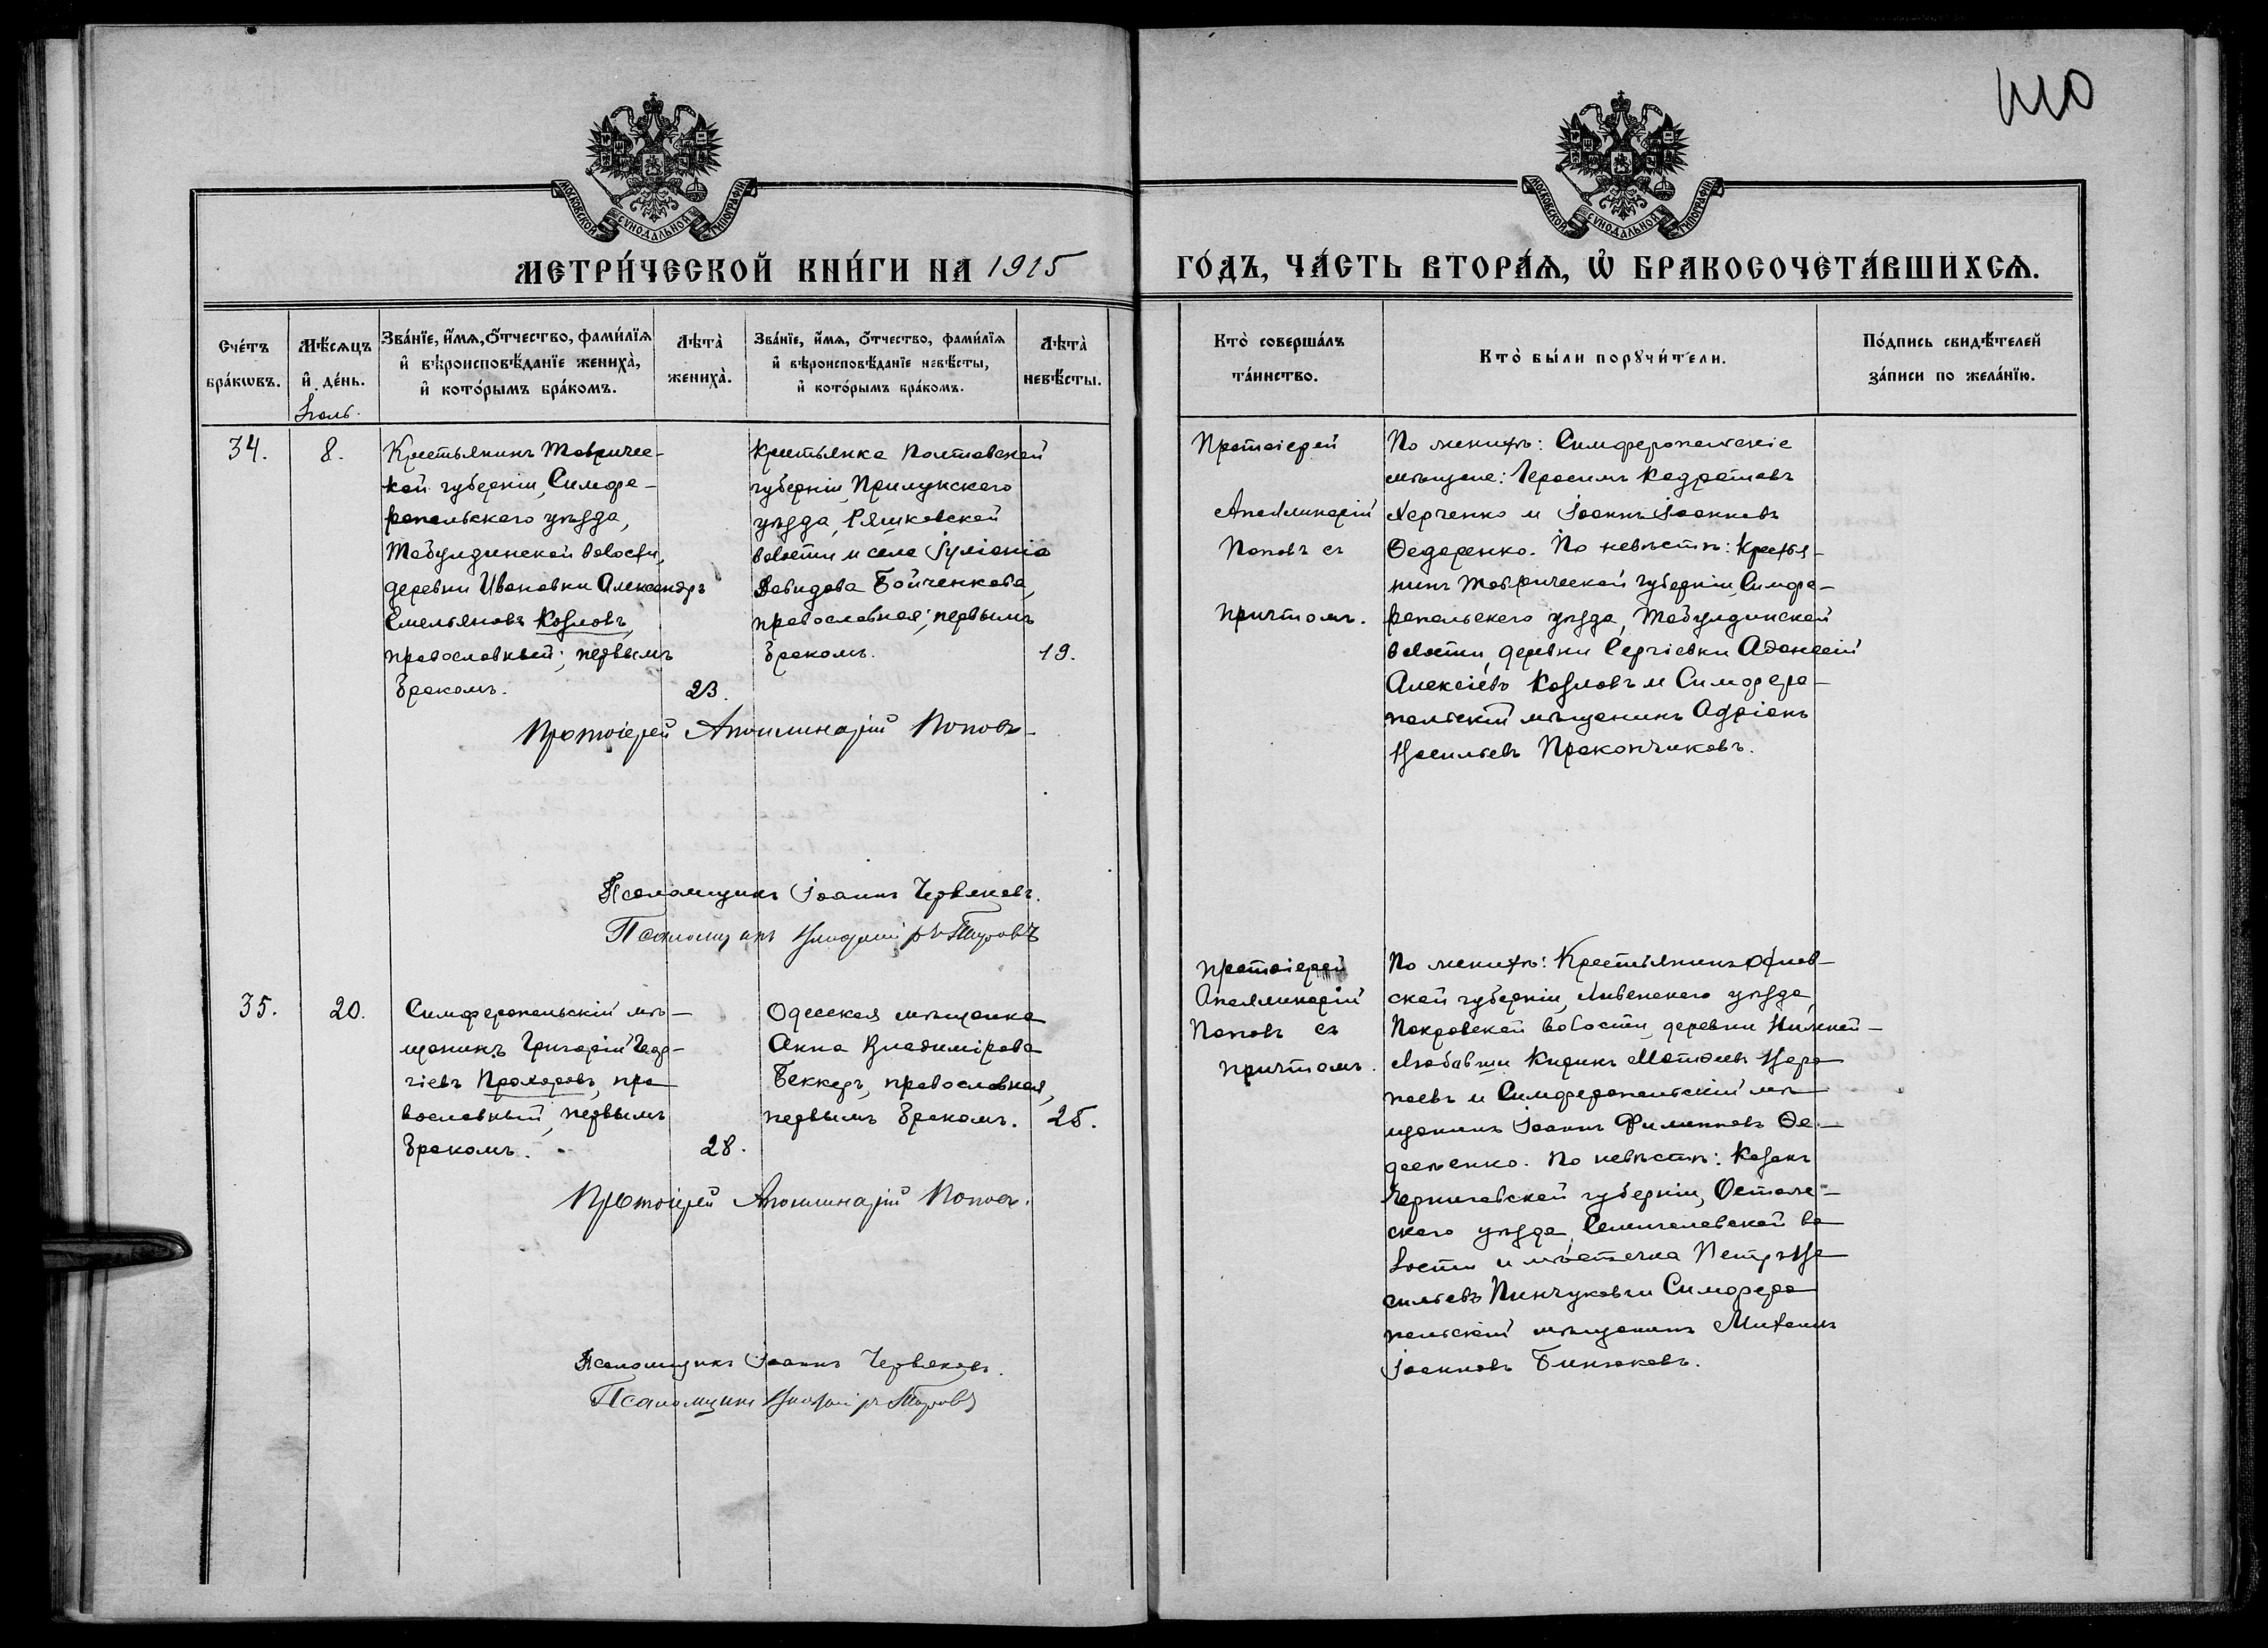 110
МОСКОВСКОЙ СУНОДАЛЬНОЙ ТИПОГРАФІИ
МОСКОВСКОЙ СУНОДАЛЬНОЙ ТИПОГРАФІИ
МЕТРИ́ЧЕСКОЙ КНИ́ГИ НА 1915
ГО́ДЪ, ЧА́СТЬ ВТОРА́Ѧ, Ѽ БРАКОСОЧЕТА́ВШИХСѦ.
Сче́тъ
бра́кѡвъ.
Мѣ́сѧцъ
и҆ де́нь.
Іюль.
Зва́нїе, и҆́мѧ, ѻ҆́тчество, фами́лїѧ
и҆ вѣроисповѣ́данїе жениха̀,
и҆ кото́рымъ бра́комъ.
Лѣ́та̀
жениха̀.
Зва́нїе, и҆́мѧ, ѻ҆́тчество, фами́лїѧ
и҆ вѣроисповѣ́данїе невѣ́сты,
и҆ кото́рымъ бра́комъ.
Лѣ́та̀
невѣ́сты.
Кто̀ соверша́лъ
та́инство.
Кто̀ бы́ли порꙋчи́тели.
По́дпись свидѣ́телей
за́писи по жела́нїю.
34.
8.
Крестьянинъ Тавричес-
кой губерніи, Симфе-
ропольскаго уѣзда,
Табулдинской волости,
деревни Ивановки Александръ
Емельяновъ Козловъ,
православный; первымъ
бракомъ.
23.
Крестьянка Полтавской
губерніи, Прилукскаго
уѣзда, Ряшковской
волости и села Іуліанія
Давидова Бойченкова,
православная; первымъ
бракомъ.
19.
Протоіерей
Аполлинарій
Поповъ съ
причтомъ.
По женихѣ: Симферопольскіе
мѣщане: Герасимъ Кодратовъ
Харченко и Іоаннъ Іоанновъ
Ѳедоренко. По невѣстѣ: Крестья-
нинъ Таврической губерніи, Симфе-
ропольскаго уѣзда, Табулдинской
волости, деревни Сергіевки Аѳанасій
Алексіевъ Козловъ и Симферо-
польскій мѣщанинъ Адріанъ
Васильевъ Прокопчиковъ.
Протоіерей Аполлинарій Поповъ
Псаломщикъ Іоаннъ Червяковъ.
Псаломщикъ
35.
20.
Симферопольскій мѣ-
щанинъ Григорій Геор-
гіевъ Прохоровъ, пра-
вославный, первымъ
бракомъ.
28.
Одесская мѣщанка
Анна Владимірова
Беккеръ, православная,
первымъ бракомъ.
25.
Протоіерей
Аполлинарій
Поповъ съ
причтомъ.
По женихѣ: Крестьянинъ Орлов-
ской губерніи, Ливенскаго уѣзда,
Покровской волости, деревни Нижней-
Любавши Кирикъ Матѳеевъ
и Симферопольскій мѣ-
щанинъ Іоаннъ Филипповъ Ѳе-
досѣенко. По невѣстѣ: Козакъ
Черниговской губерніи, Остер-
скаго уѣзда, Семиполовской во-
лости и мѣстечка Петръ Ва-
сильевъ Пинчуковъ и Симферо-
польскій мѣщанинъ Михаилъ
Іоанновъ Бинюковъ.
Протоіерей Аполлинарій Поповъ.
Псаломщикъ Іоаннъ Червяковъ.
Псаломщикъ